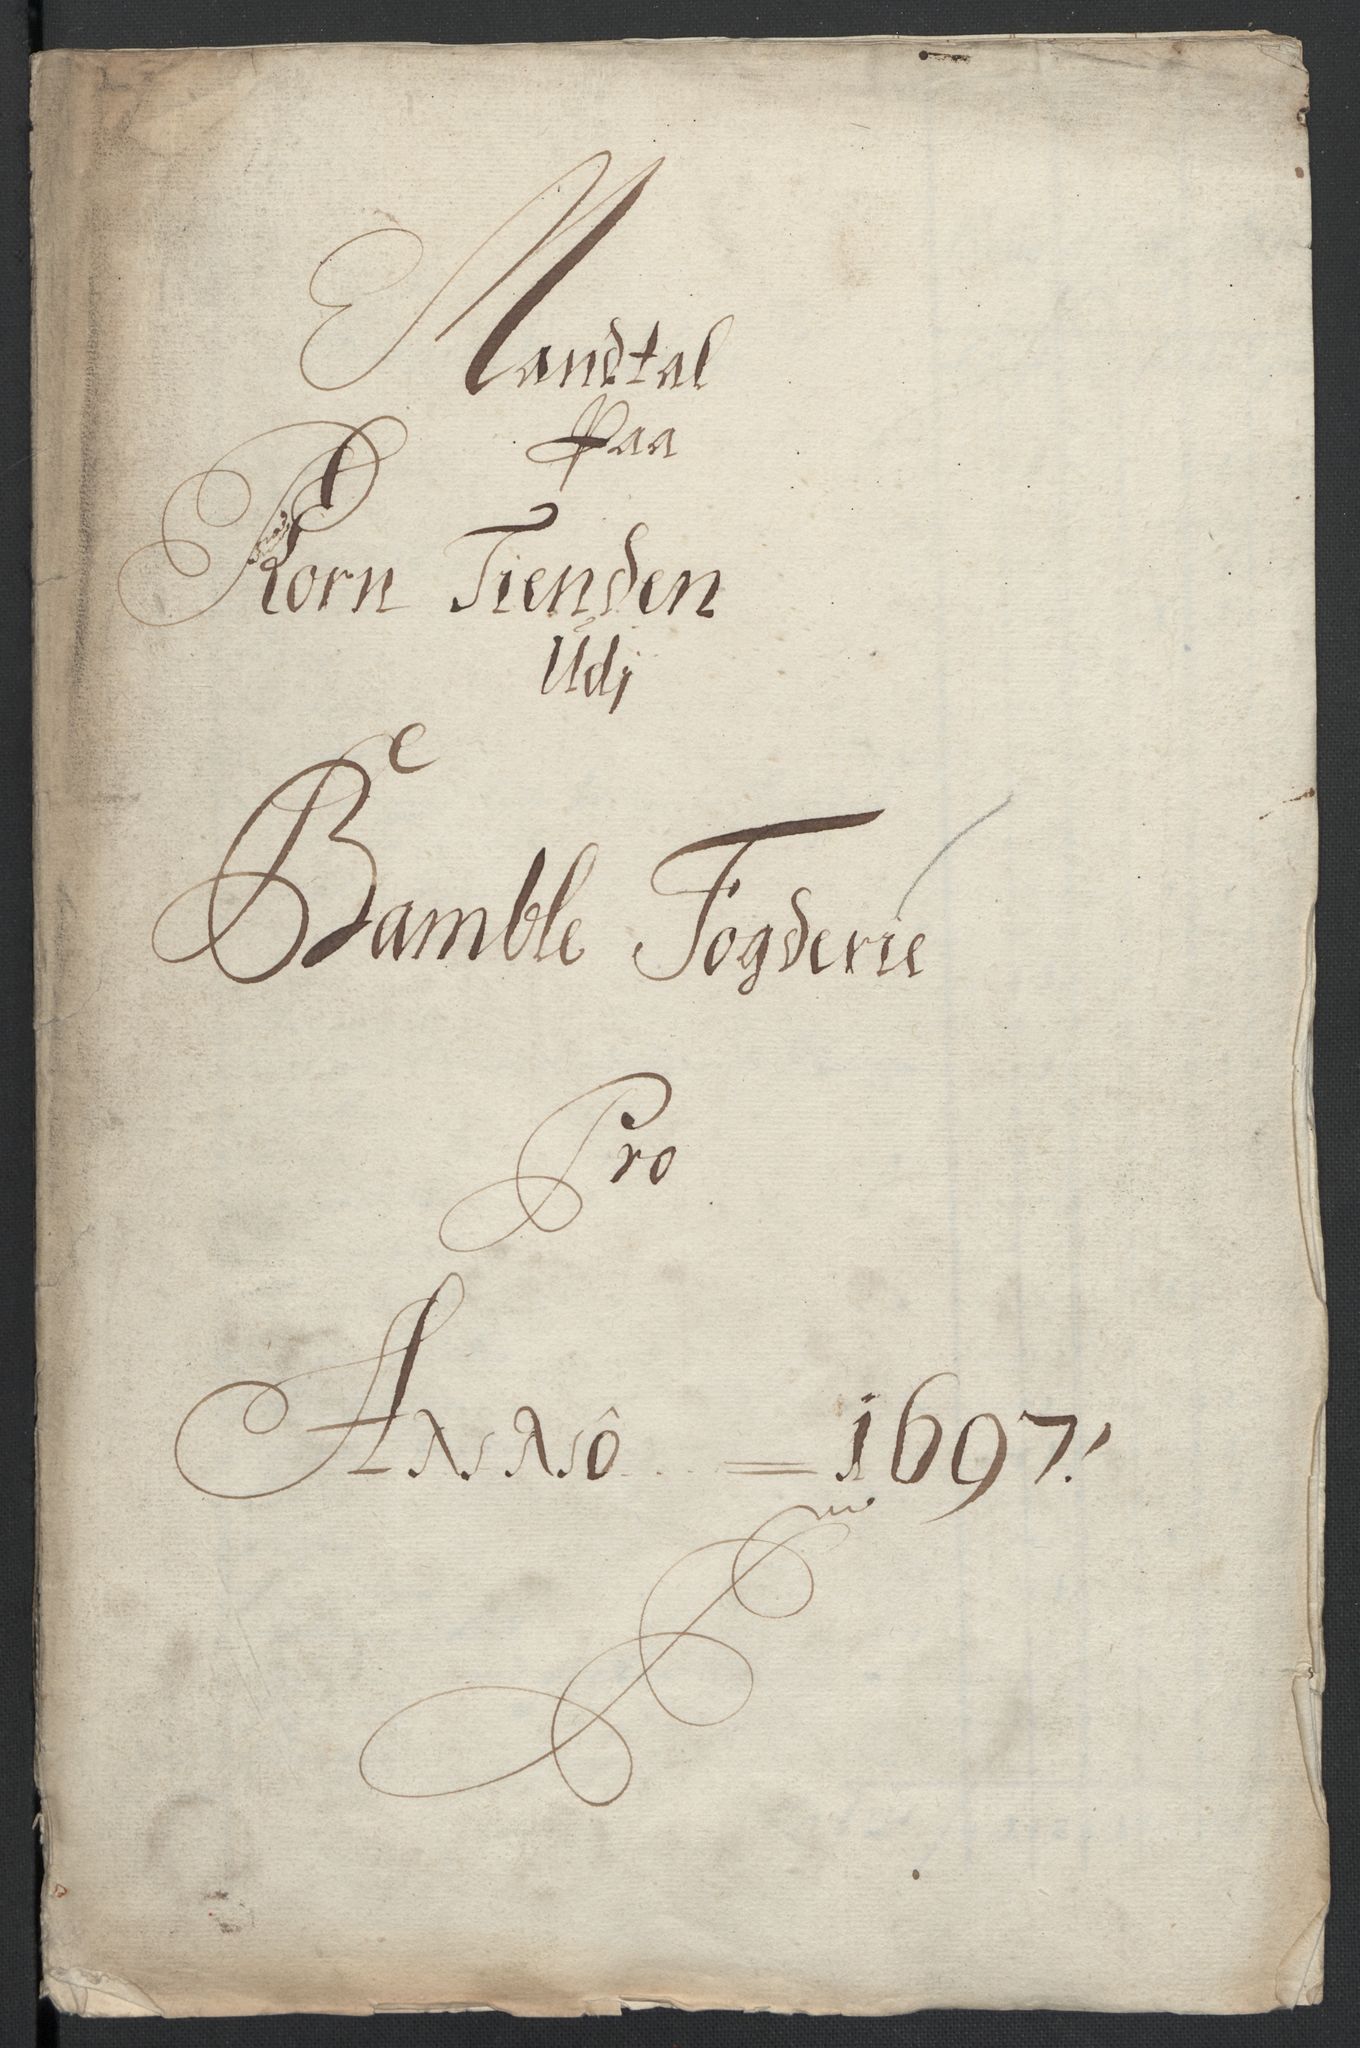 Mandtal
Paa
Korn Tienden
Udj
Bamble Fogderie
Pro
Anno = 1697.